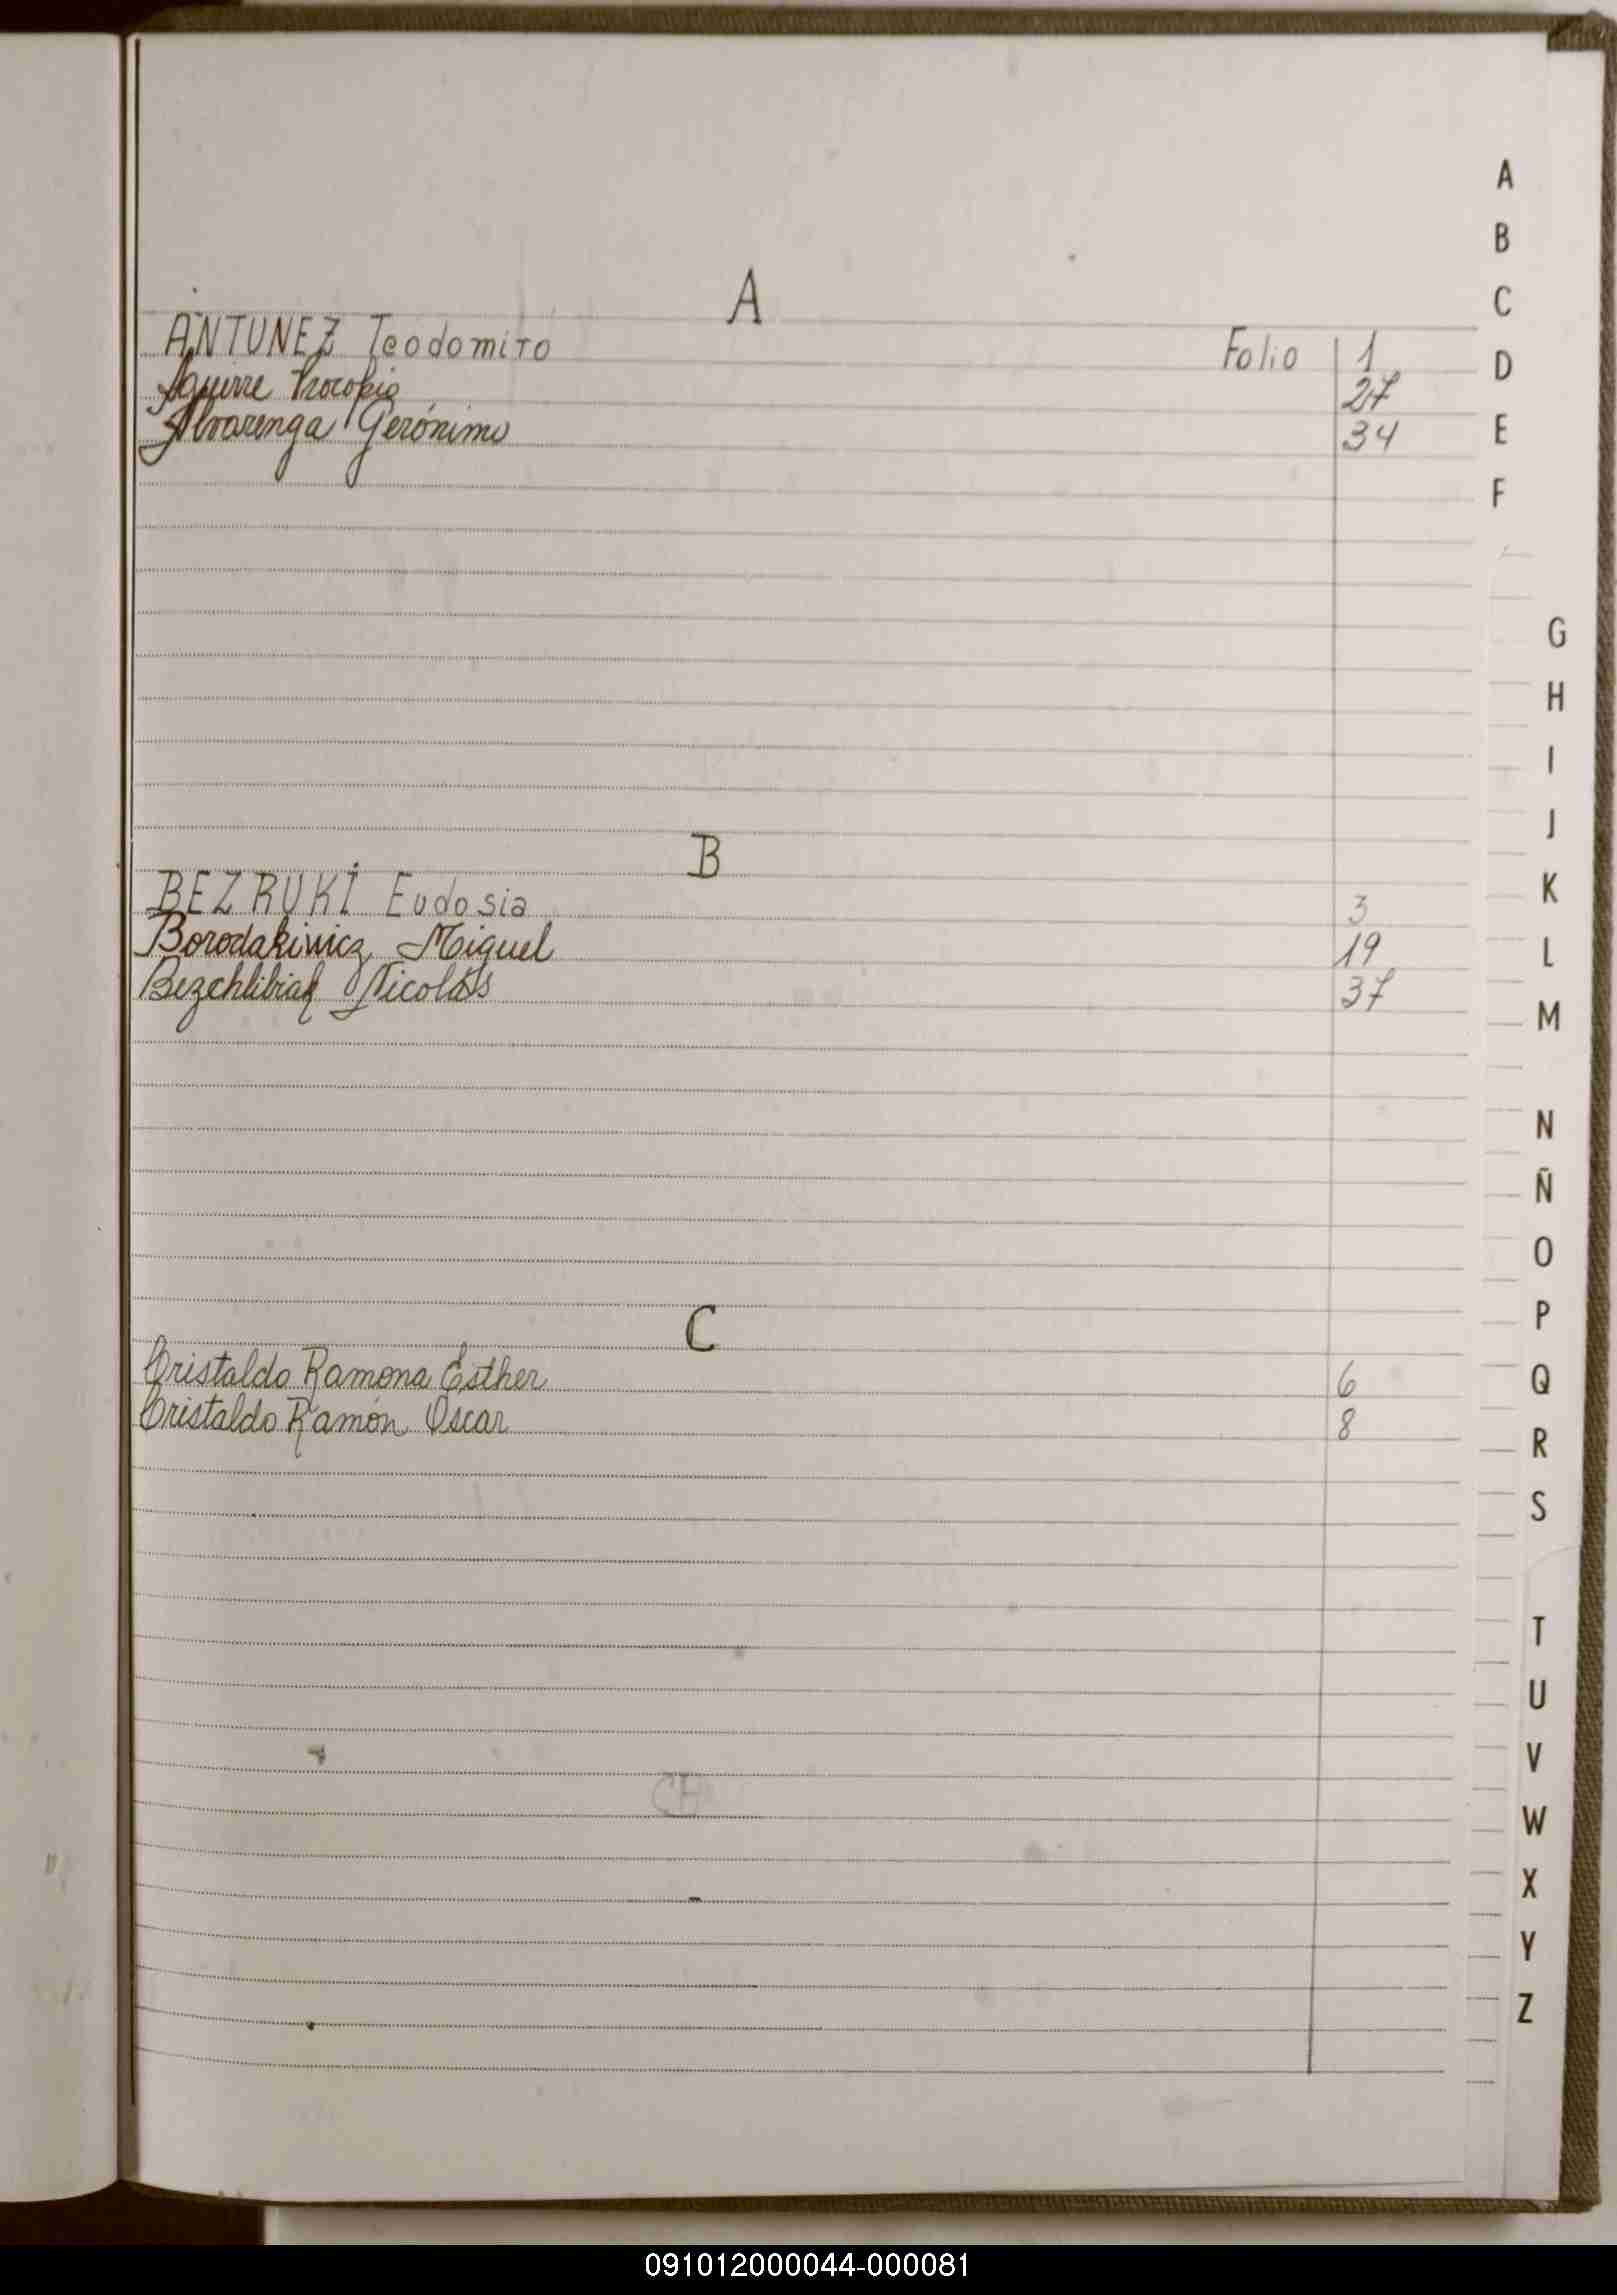 A
ANTUNEZ Teodomiro Folio 1
Aguirre Procopio 27
Alvarenga Gerónimo 34
B
BEZRUKI Eudosia 3
Borodakiwicz Miguel 19
Bezchlibiak Nicolás 37
C
Cristaldo Ramona Esther 6
Cristaldo Ramón Oscar 8
CH
A
B
C
D
E
F
G
H
I
J
K
L
M
N
Ñ
O
P
Q
R
S
T
U
V
W
X
Y
Z
091012000044-000081